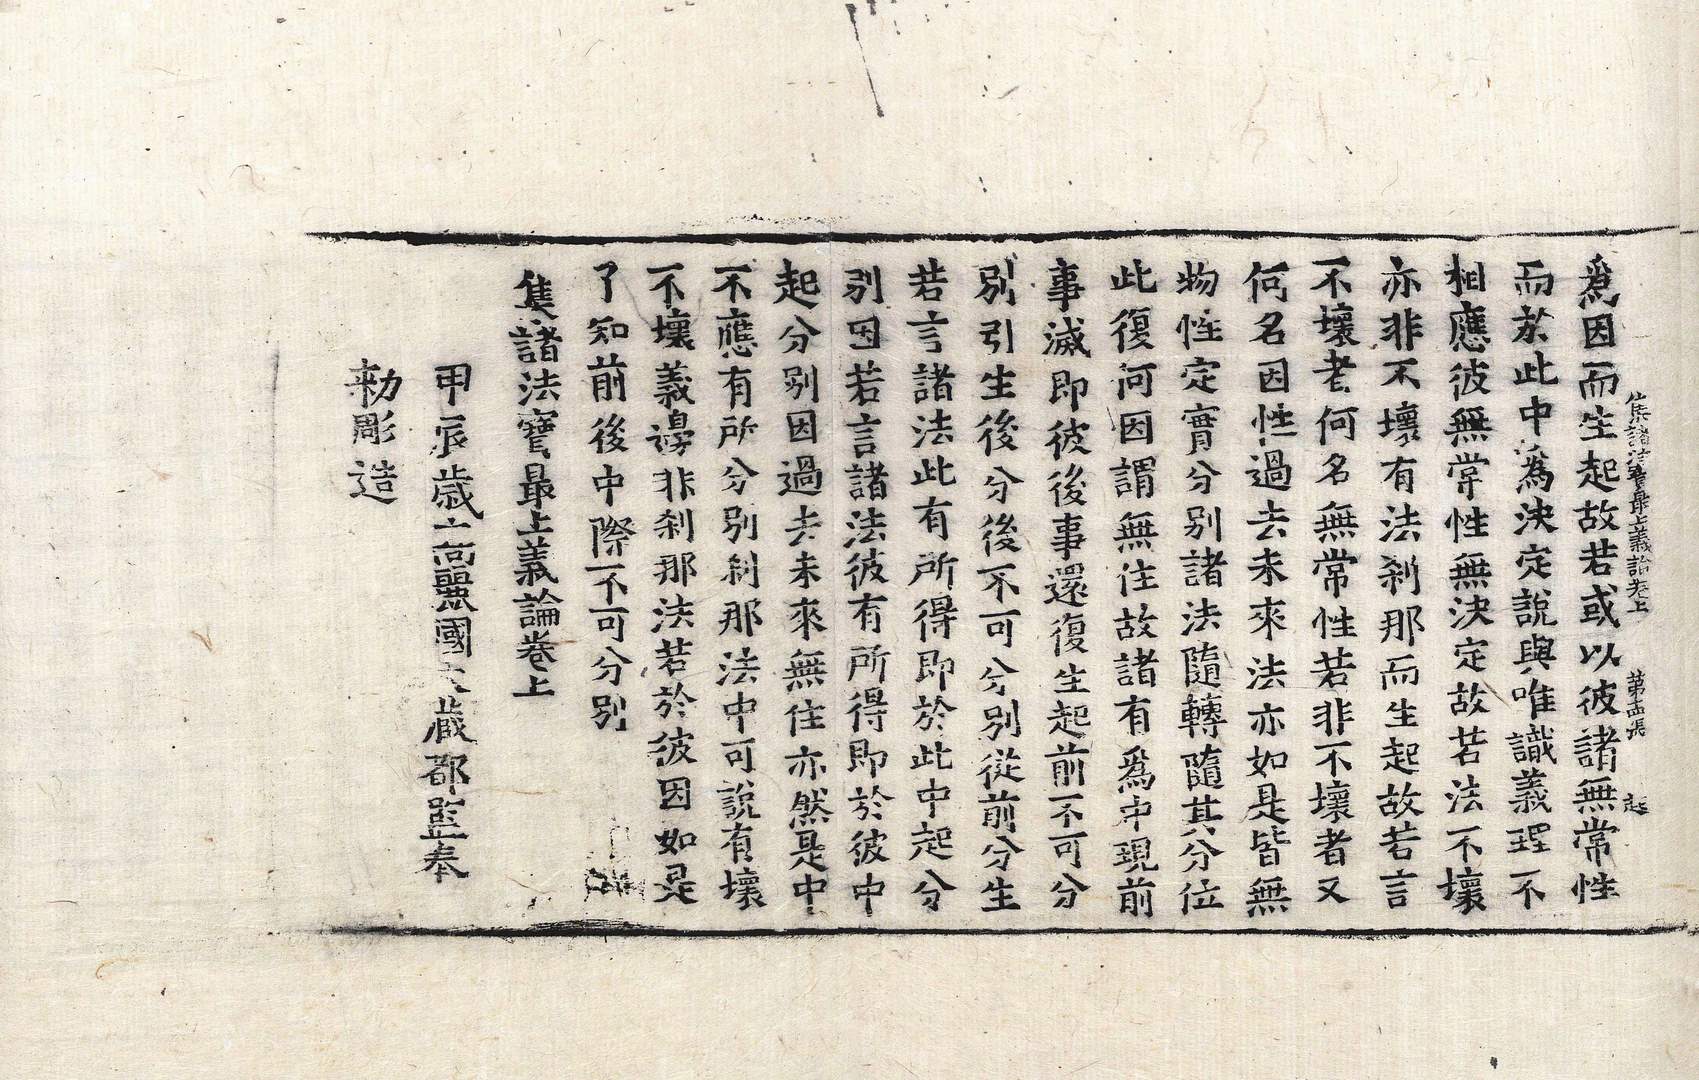 集諸法寶最上義論卷上 第十四張 起
爲因而生起故若或以彼諸無常性
而於此中爲決定說與唯識義理不
相應彼無常性無決定故若法不壞
亦非不壞有法剎那而生起故若言
不壞者何名無常性若非不壞者又
何名因性過去未來法亦如是皆無
物性定實分別諸法隨轉隨其分位
此復何因謂無住故諸有爲中現前
事滅即彼後事還復生起前不可分
別引生後分後不可分別從前分生
若言諸法此有所得即於此中起分
別因若言諸法彼有所得即於彼中
起分別因過去未來無住亦然是中
不應有所分別剎那法中可說有壞
不壞義邊非剎那法若於彼因如是
了知前後中際不可分別
集諸法寶最上義論卷上
甲辰歲高麗國大藏都監奉
勅彫造